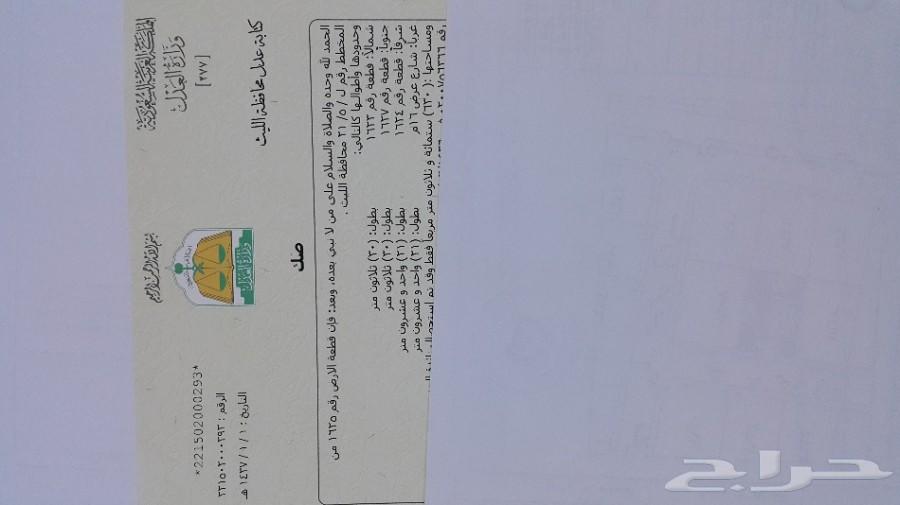 المملكة العربية السعودية
وزارة العدل
[٢٧٧]
كتابة عدل محافظة الليث
بسم الله الرحمن الرحيم
وزارة العدل
*2215020000293*
الرقم : ٢٢١٥٠٢٠٠٠٢٩٣
التاريخ : ١ / ١ / ١٤٣٧ هـ
صك
الحمد لله وحده والصلاة والسلام على من لا نبي بعده، وبعد: فإن قطعة الارض رقم ١٦٢٥ من
المخطط رقم ل / ٥ / ٢١ محافظة الليث .
وحدودها وأطوالها كالتالي:
شمالاً: قطعة رقم ١٦٢٣ بطول: (٣٠) ثلاثون متر
جنوباً: قطعة رقم ١٦٢٧ بطول: (٣٠) ثلاثون متر
شرقاً: قطعة رقم ١٦٢٤ بطول: (٢١) واحد و عشرون متر
غرباً: شارع عرض ١٦م بطول: (٢١) واحد و عشرون متر
ومساحتها : ( ٦٣٠ ) ستمائة و ثلاثون متر مربعا فقط وقد تم
حراج